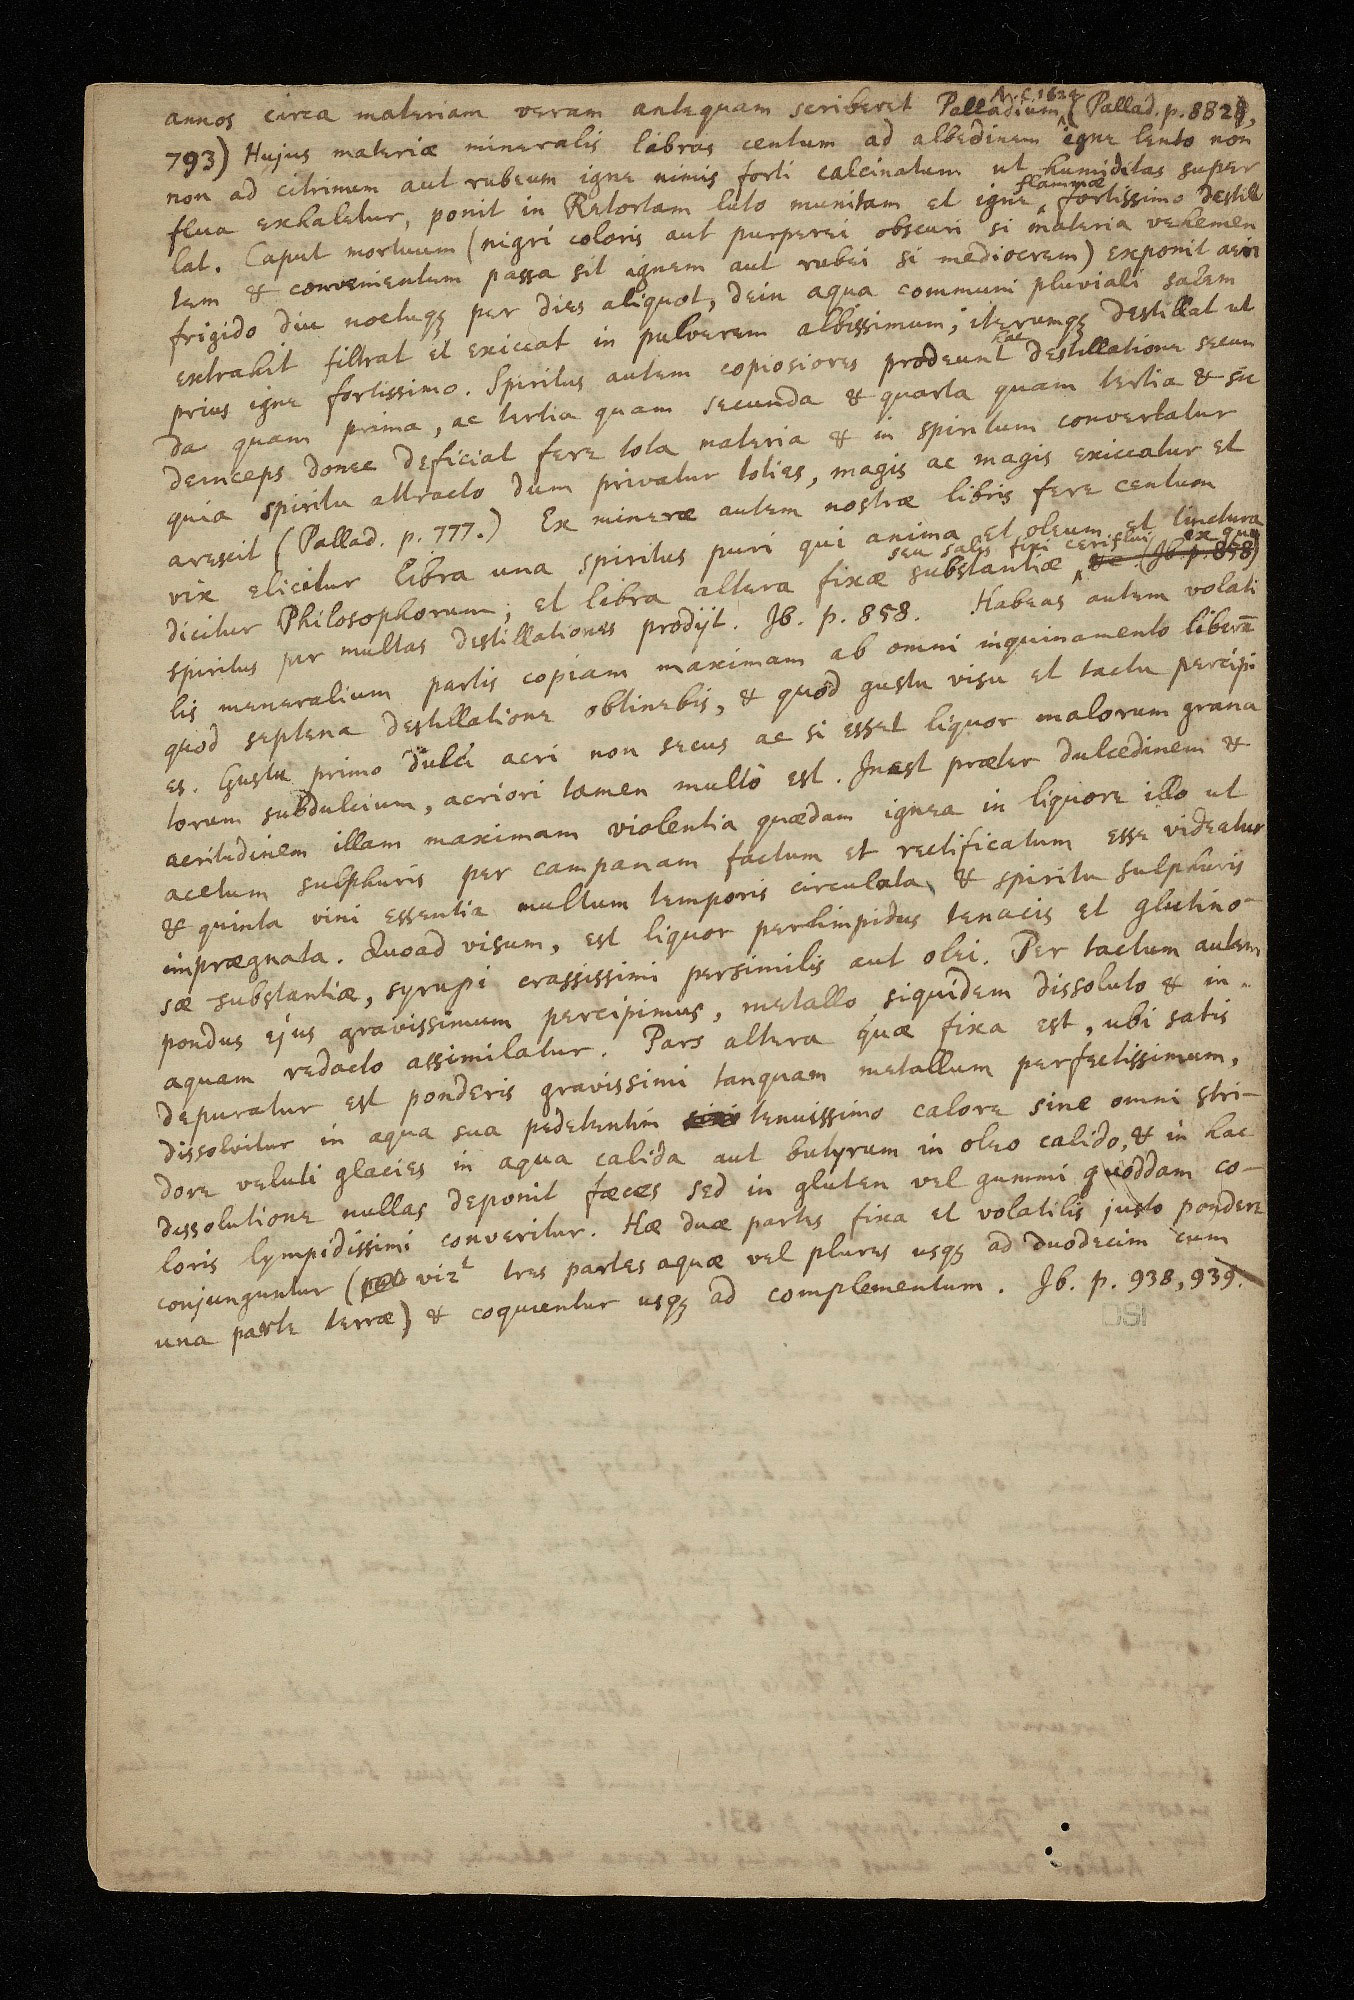 annos circa materiam veram antequam scriberet Palladium A.C. 1624 (Pallad. p. 882,
793) Hujus materiæ mineralis libras centum ad albedinem igne lento non
non ad citrinum aut rubeum igne nimis forti calcinatum ut humiditas super
flua exhaletur, ponit in Retortam luto munitam et igne flammæ fortissimo destil
lat. Caput mortuum (nigri coloris aut purperei obscuri si materia vehemen
tem & convenientem passa sit ignem aut rubei si mediocrem) exponit aeri
frigido diu noctuqꝫ per dies aliquot, dein aqua communi pluviali salem
extrahit filtrat et exiccat in pulverem albissimum, iterumqꝫ destillat ut
prius igne fortissimo. Spiritus autem copiosiores prodeunt hac destillatione secun
da quam prima, ac tertia quam secunda & quarta quam tertia & sic
deinceps donec deficiat fere tota materia & in spiritum convertatur
quia spiritu attracto dum privatur toties, magis ac magis exiccatur et
arescit (Pallad. p. 777.) Ex mineræ autem nostræ libris fere centum
vix elicitur libra una spiritus puri qui anima et oleum et tinctura
dicitur Philosophorum; et libra altera fixæ substantiæ seu salis fixi cerei flui ex qua &c (Ib. p. 858)
spiritus per multas destillationes prodijt. Ib. p. 858. Habeas autem volati
lis meneralium partis copiam maximam ab omni inquinamento liberū
quod septena destillatione obtinebis, & quod gustu visu et tactu percipi
es. Gustu primo dulci acri non secus ac si esset liquor malorum grana
torum subdulcium, acriori tamen multò est. Inest præter dulcedinem &
acritudinem illam maximam violentia quædam ignea in liquore illo ut
acetum sulphuris per campanam factum et rectificatum esse videatur
& quinta vini essentia multum temporis circulata & spiritu sulphuris
imprægnata. Quoad visum, est liquor perlimpidus tenacis et glutino-
sæ substantiæ, syrupi crassissimi persimilis aut olei. Per tactum autem
pondus ejus gravissimum percipimus, metallo siquidem dissoluto & in
aquam redacto assimilatur. Pars altera quæ fixa est, ubi satis
depuratur est ponderis gravissimi tanquam metallum perfectissimum,
dissolvitur in aqua sua pedetentim tenuissimo calore sine omni stri-
dore veluti glacies in aqua calida aut butyrum in oleo calido, & in hac
dissolutione nullas deponit fæces sed in gluten vel gummi quoddam co-
loris lympidissimi converitur. Hæ duæ partes fixa et volatilis justo pondere
conjunguntur (vizt tres partes aquæ vel plures usqꝫ ad duodecim cum
una parte terræ) & coquentur usqꝫ ad complementum. Ib. p. 938, 939.